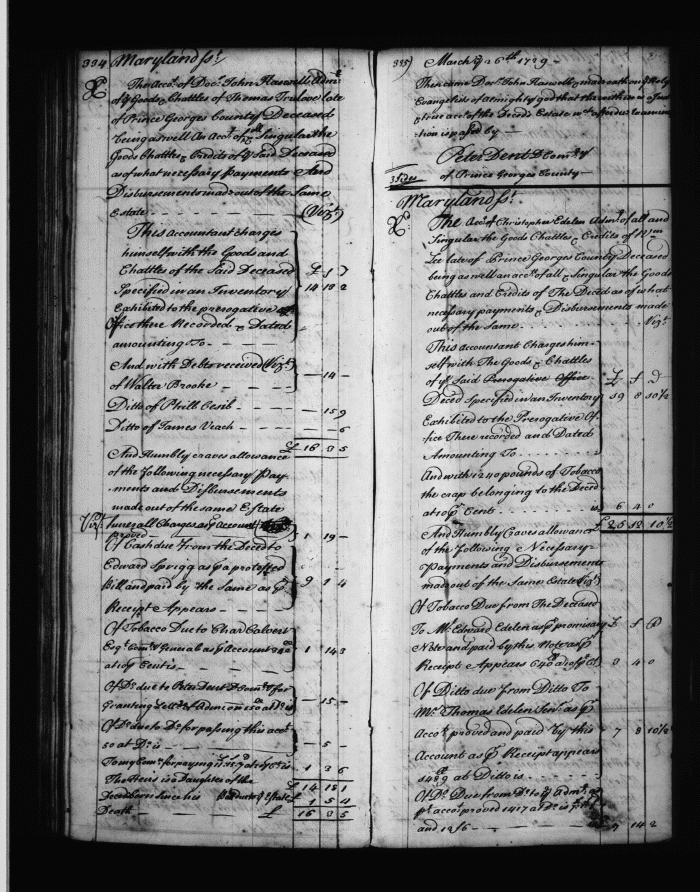 334 Maryland ss.t
The Acc.t of Doc.r John Haswell Adm.r
of y.e Goods & Chattles of Thomas Truelove late
of Prince Georges County Deceased
being as well An Acc.t of all & Singular the
Goods Chattles & Credits of y.e Said Deceased
as of what necessary payments And
Disbursements made out of the Same
Estate - - - - (Viz.t)
This accountant charges
himself with the Goods and
Chattles of the Said Deceased £ S D
Specified in an Inventory 14 18 2
Exhibited to the prerogative
Office there Recorded & Dated
amounting To - -
And with Debts received Viz.t
of Walter Brooke - - - - 14 -
Ditto of Phill Cecil - - - - 15 9
Ditto of James Veach - - - - - 6
£ 16 8 5
And Humbly craves allowance
of the following necessary Pay-
ments and Disbursements
made out of the same Estate
Viz.t funerall Charges as p Account
proved - - - 1 19 -
Of Cash due from the Deced to
Edward Sprigg as p a protested
Bill and paid by the Same as p 9 1 4
Receipt Appears - - -
Of Tobacco Due to Char.s Calvert
Esq.r Com.ry Generall as p Account 1 14 3
at 10/ p Cent is -
Of D.o due to Peter Dent D Com.ry for
Granting Lett.rs of Admon - 15 -
Of D.o due to D.o for passing this acc.t
50 at D.o is - - - 5 -
1 3 6
The Heir is a Daughter of the £ 14 18 1
Deced born since his Ball. due y.e Estate 1 5 4
Death - - - £ 16 3 5
335) March y.e 26th 1729 -
Then came Doc.r John Haswell & made oath on y.e Holy
Evangelists of Almighty god that the within is a Just
& true acc.t of the Deceds Estate w.ch after due Examina
-tion is passed by -
Peter Dent D Com.ry
3 sides of Prince Georges County
Maryland ss.t
The Acc.t of Christopher Edelen Adm.r of all and
Singular the Goods Chattles & Credits of W.m
Lee late of Prince Georges County Deceased
being as well an acc.t of all & Singular the Goods
Chattles and Credits of The Deced as of what
necessary payments & Disbursements made
out of the Same - - - Viz.t
This accountant Charges him-
self with The Goods & Chattles
of y.e Said Prerogative Office £ S D
Deced Specified in an Inventory 19 8 10½
Exhibited to the Prerogative Of-
fice There recorded and Dated
Amounting To - - - -
And with 1240 pounds of Tobacco
the crop belonging to the Deced
at 10/ p Cent - - - is 6 4 0
£ 25 12 10½
And Humbly Caves allowance
of the following Necessary
Payments and Disbursements
made out of the Same Estate (Viz.t)
Of Tobacco Due from The Deceased
To M.r Edward Edelen as p promisary £ S D
Note and paid by this Note as p
Receipt Appears 640 3 4 0
Of Ditto due from Ditto To
M.r Thomas Edelen Sen.r as p
Acco.t proved and paid by this 7 8 10½
Account as p Receipt appears
1489 at Ditto is - - - -
Of D.o Due from D.o to y.e Adm.r as
p acco.t proved 1417 at D.o is
and 12/6 - - - - 14 2